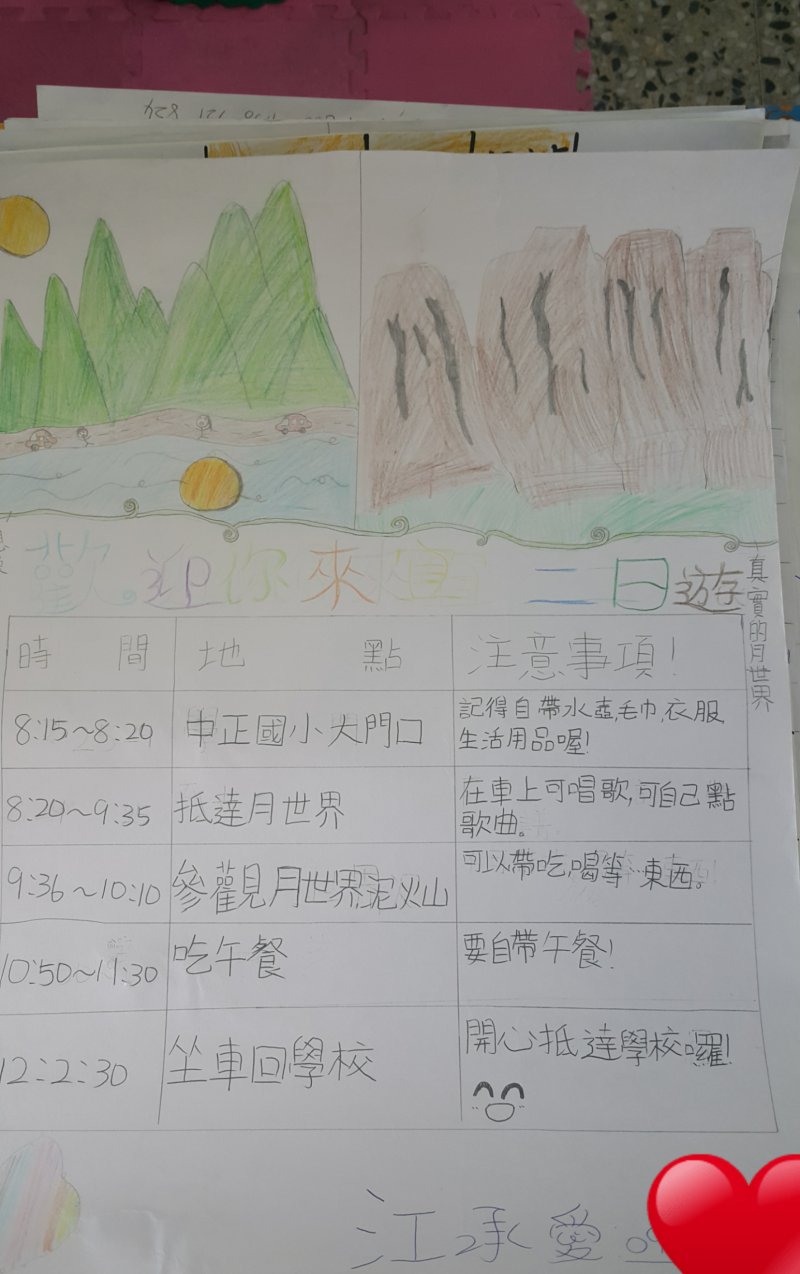 歡迎你來 二日遊
真實的月世界
時間 地點 注意事項!
8:15~8:20 中正國小大門口 記得自帶水壺,毛巾,衣服
生活用品喔!
8:20~9:35 抵達月世界 在車上可唱歌,可自己點
歌曲。
9:36~10:10 參觀見月世界,泥火山 可以帶吃,喝等…東西。
10:50~11:30 吃午餐 要自帶午餐!
12:2:30 坐車回學校 開心抵達學校囉!
江承愛